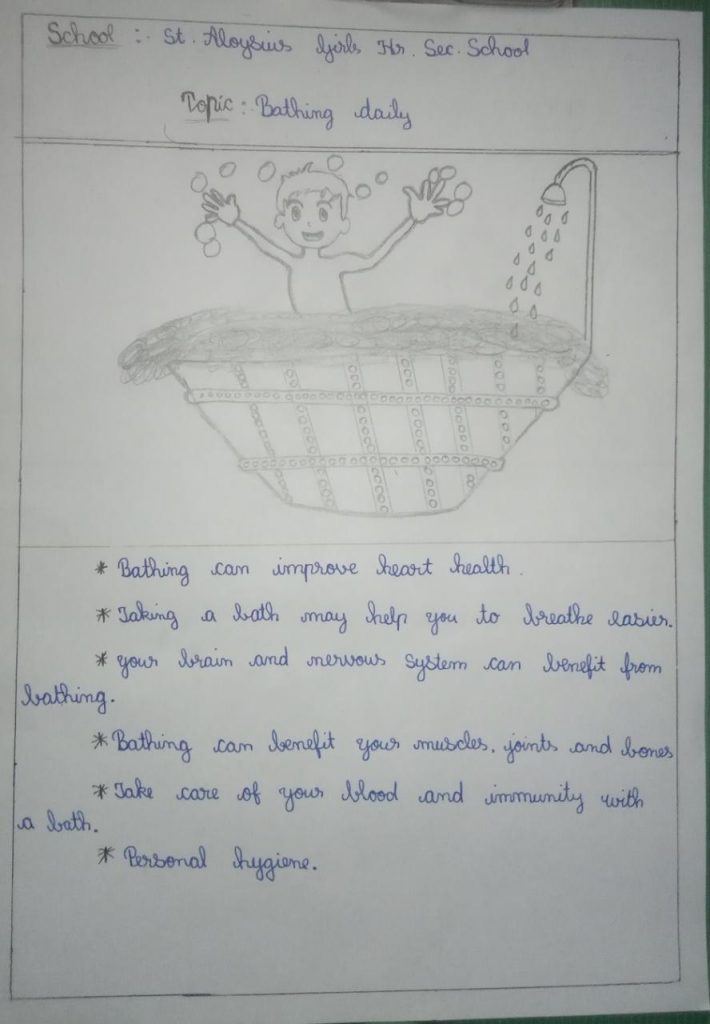 School :- St. Aloysius Girls Hr. Sec. School
Topic :- Bathing daily
* Bathing can improve heart health.
* Taking a bath may help you to breathe easier.
* your brain and nervous system can benefit from
bathing.
* Bathing can benefit your muscles, joints and bones
* Take care of your blood and immunity with
a bath.
* Personal hygiene.